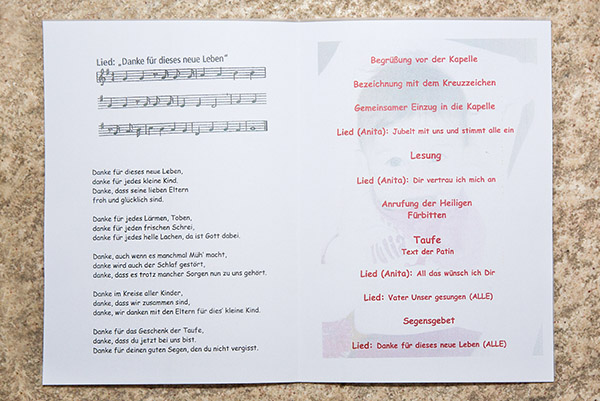 Lied: „Danke für dieses neue Leben“
Danke für dieses neue Leben,
danke für jedes kleine Kind.
Danke, dass seine lieben Eltern
froh und glücklich sind.
Danke für jedes Lärmen, Toben,
danke für jeden frischen Schrei,
danke für jedes helle Lachen, da ist Gott dabei.
Danke, auch wenn es manchmal Müh' macht,
danke wird auch der Schlaf gestört,
danke, dass es trotz mancher Sorgen nun zu uns gehört.
Danke im Kreise aller Kinder,
danke, dass wir zusammen sind,
danke, wir danken mit den Eltern für dies' kleine Kind.
Danke für das Geschenk der Taufe,
danke, dass du jetzt bei uns bist.
Danke für deinen guten Segen, den du nicht vergisst.
Begrüßung vor der Kapelle
Bezeichnung mit dem Kreuzzeichen
Gemeinsamer Einzug in die Kapelle
Lied (Anita): Jubelt mit uns und stimmt alle ein
Lesung
Lied (Anita): Dir vertrau ich mich an
Anrufung der Heiligen
Fürbitten
Taufe
Text der Patin
Lied (Anita): All das wünsch ich Dir
Lied: Vater Unser gesungen (ALLE)
Segensgebet
Lied: Danke für dieses neue Leben (ALLE)